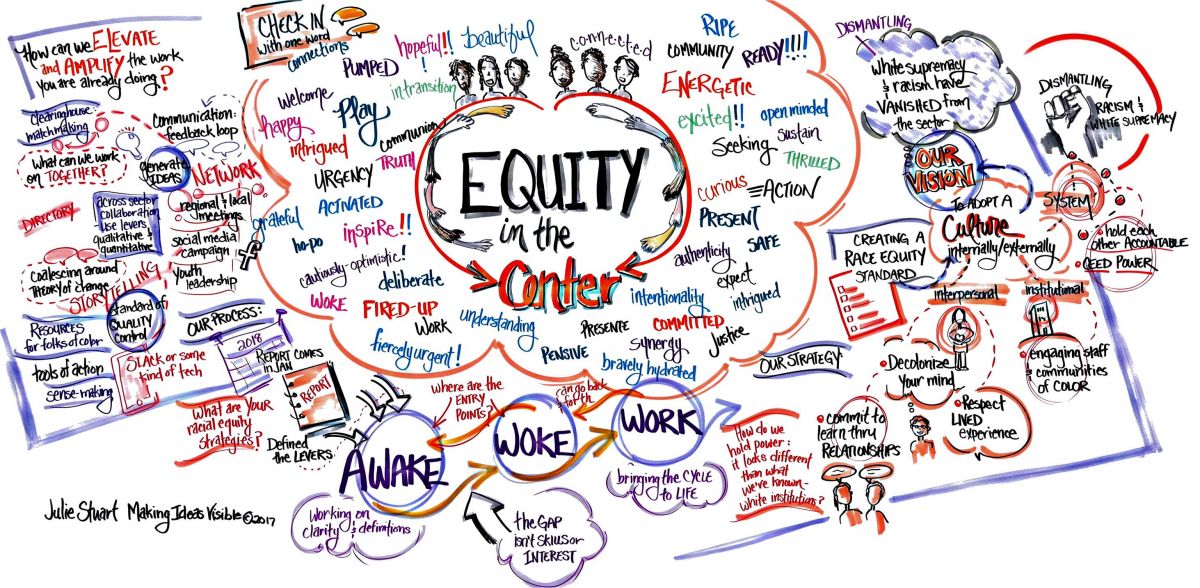 How can we ELEVATE
and AMPLIFY the work
you are already doing?
clearinghouse:
matchmaking
communication:
feedback loop
What can we work
on TOGETHER?
generate
IDEAS
NETWORK
DIRECTORY
across sector
collaboration
use levers
qualitative &
quantitative
regional & local
meetings
social media
campaign
f
youth
leadership
Coalescing around
theory of change
STORYTELLING
standard of
QUALITY
control
Resources
for folks of color
tools of action
sense-making
OUR PROCESS:
SLACK or some
kind of tech
2018
REPORT COMES
IN JAN
REPORT
What are YOUR
racial equity
strategies?
Defined
the LEVERS
CHECK IN
with one word
connections
PUMPED
hopeful!!!
beautiful
in transition
connected
RIPE
COMMUNITY
READY!!!!
ENERGETIC
welcome
Play
happy
intrigued
communion
TRUTH
URGENCY
excited!!
open minded
seeking
sustain
THRILLED
curious
=ACTION
grateful
ACTIVATED
ho-po
inspiRe!!
cautiously-optimistic!
deliberate
WOKE
FIRED-UP
WORK
understanding
fiercely urgent!
PENSIVE
PRESENT
authenticity
SAFE
expect
intentionality
intrigued
PRESENTE
COMMITTED
synergy
justice
bravely hydrated
EQUITY
in the
Center
DISMANTLING
white supremacy
& racism have
VANISHED from
the sector
DISMANTLING
RACISM &
WHITE SUPREMACY
OUR
VISION
TO ADOPT A
Culture
internally/externally
SYSTEM
hold each
other ACCOUNTABLE
CEED POWER
CREATING A
RACE EQUITY
STANDARD
interpersonal
institutional
Decolonize
your mind
engaging staff
& communities
of COLOR
Respect
LIVED
experience
commit to
learn thru
RELATIONSHIPS
OUR STRATEGY
Where are the
ENTRY
POINTS?
can go back
& forth
AWAKE
WOKE
WORK
bringing the CYCLE
to LIFE
How do we
hold power:
it looks different
than what
we've known-
white institutions?
Working on
clarity & definitions
the GAP
isn't SKILLS or
INTEREST
Julie Stuart Making Ideas Visible ©2017